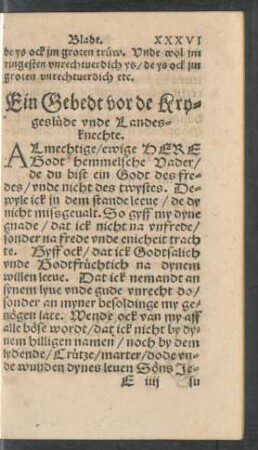 Blade. XXXVI
de ys ock jm groten trüw. Vnde wol jm
ringesten vnrechtuerdich ys/ de ys ock jm
groten vnrechtuerdich etc.
Ein Gebedt vor de Kry-
geslüde vnde Landes-
knechte.
ALmechtige/ ewige HERE
Godt hemmelsche Vader/
de du bist ein Godt des fre-
des/ vnde nicht des twystes. De-
wyle ick jn dem stande leeue/ de dy
nicht missgeualt. So gyff my dyne
gnade/ dat ick nicht na vnfrede/
sonder na frede vnde enicheit trach
te. Gyff ock/ dat ick Godtsalich
vnde Godtfrüchtich na dynem
willen leeue. Dat ick nemandt an
synem lyue vnde gude vnrecht do/
sonder an myner besoldinge my ge-
nögen late. Wende ock van my aff
alle böse wordt/ dat ick nicht by dy-
nem hilligen namen/ noch by dem
lydende/ Crütze/ marter/ dode vn-
de wunden dynes leuen Söns Je-
E iiij su